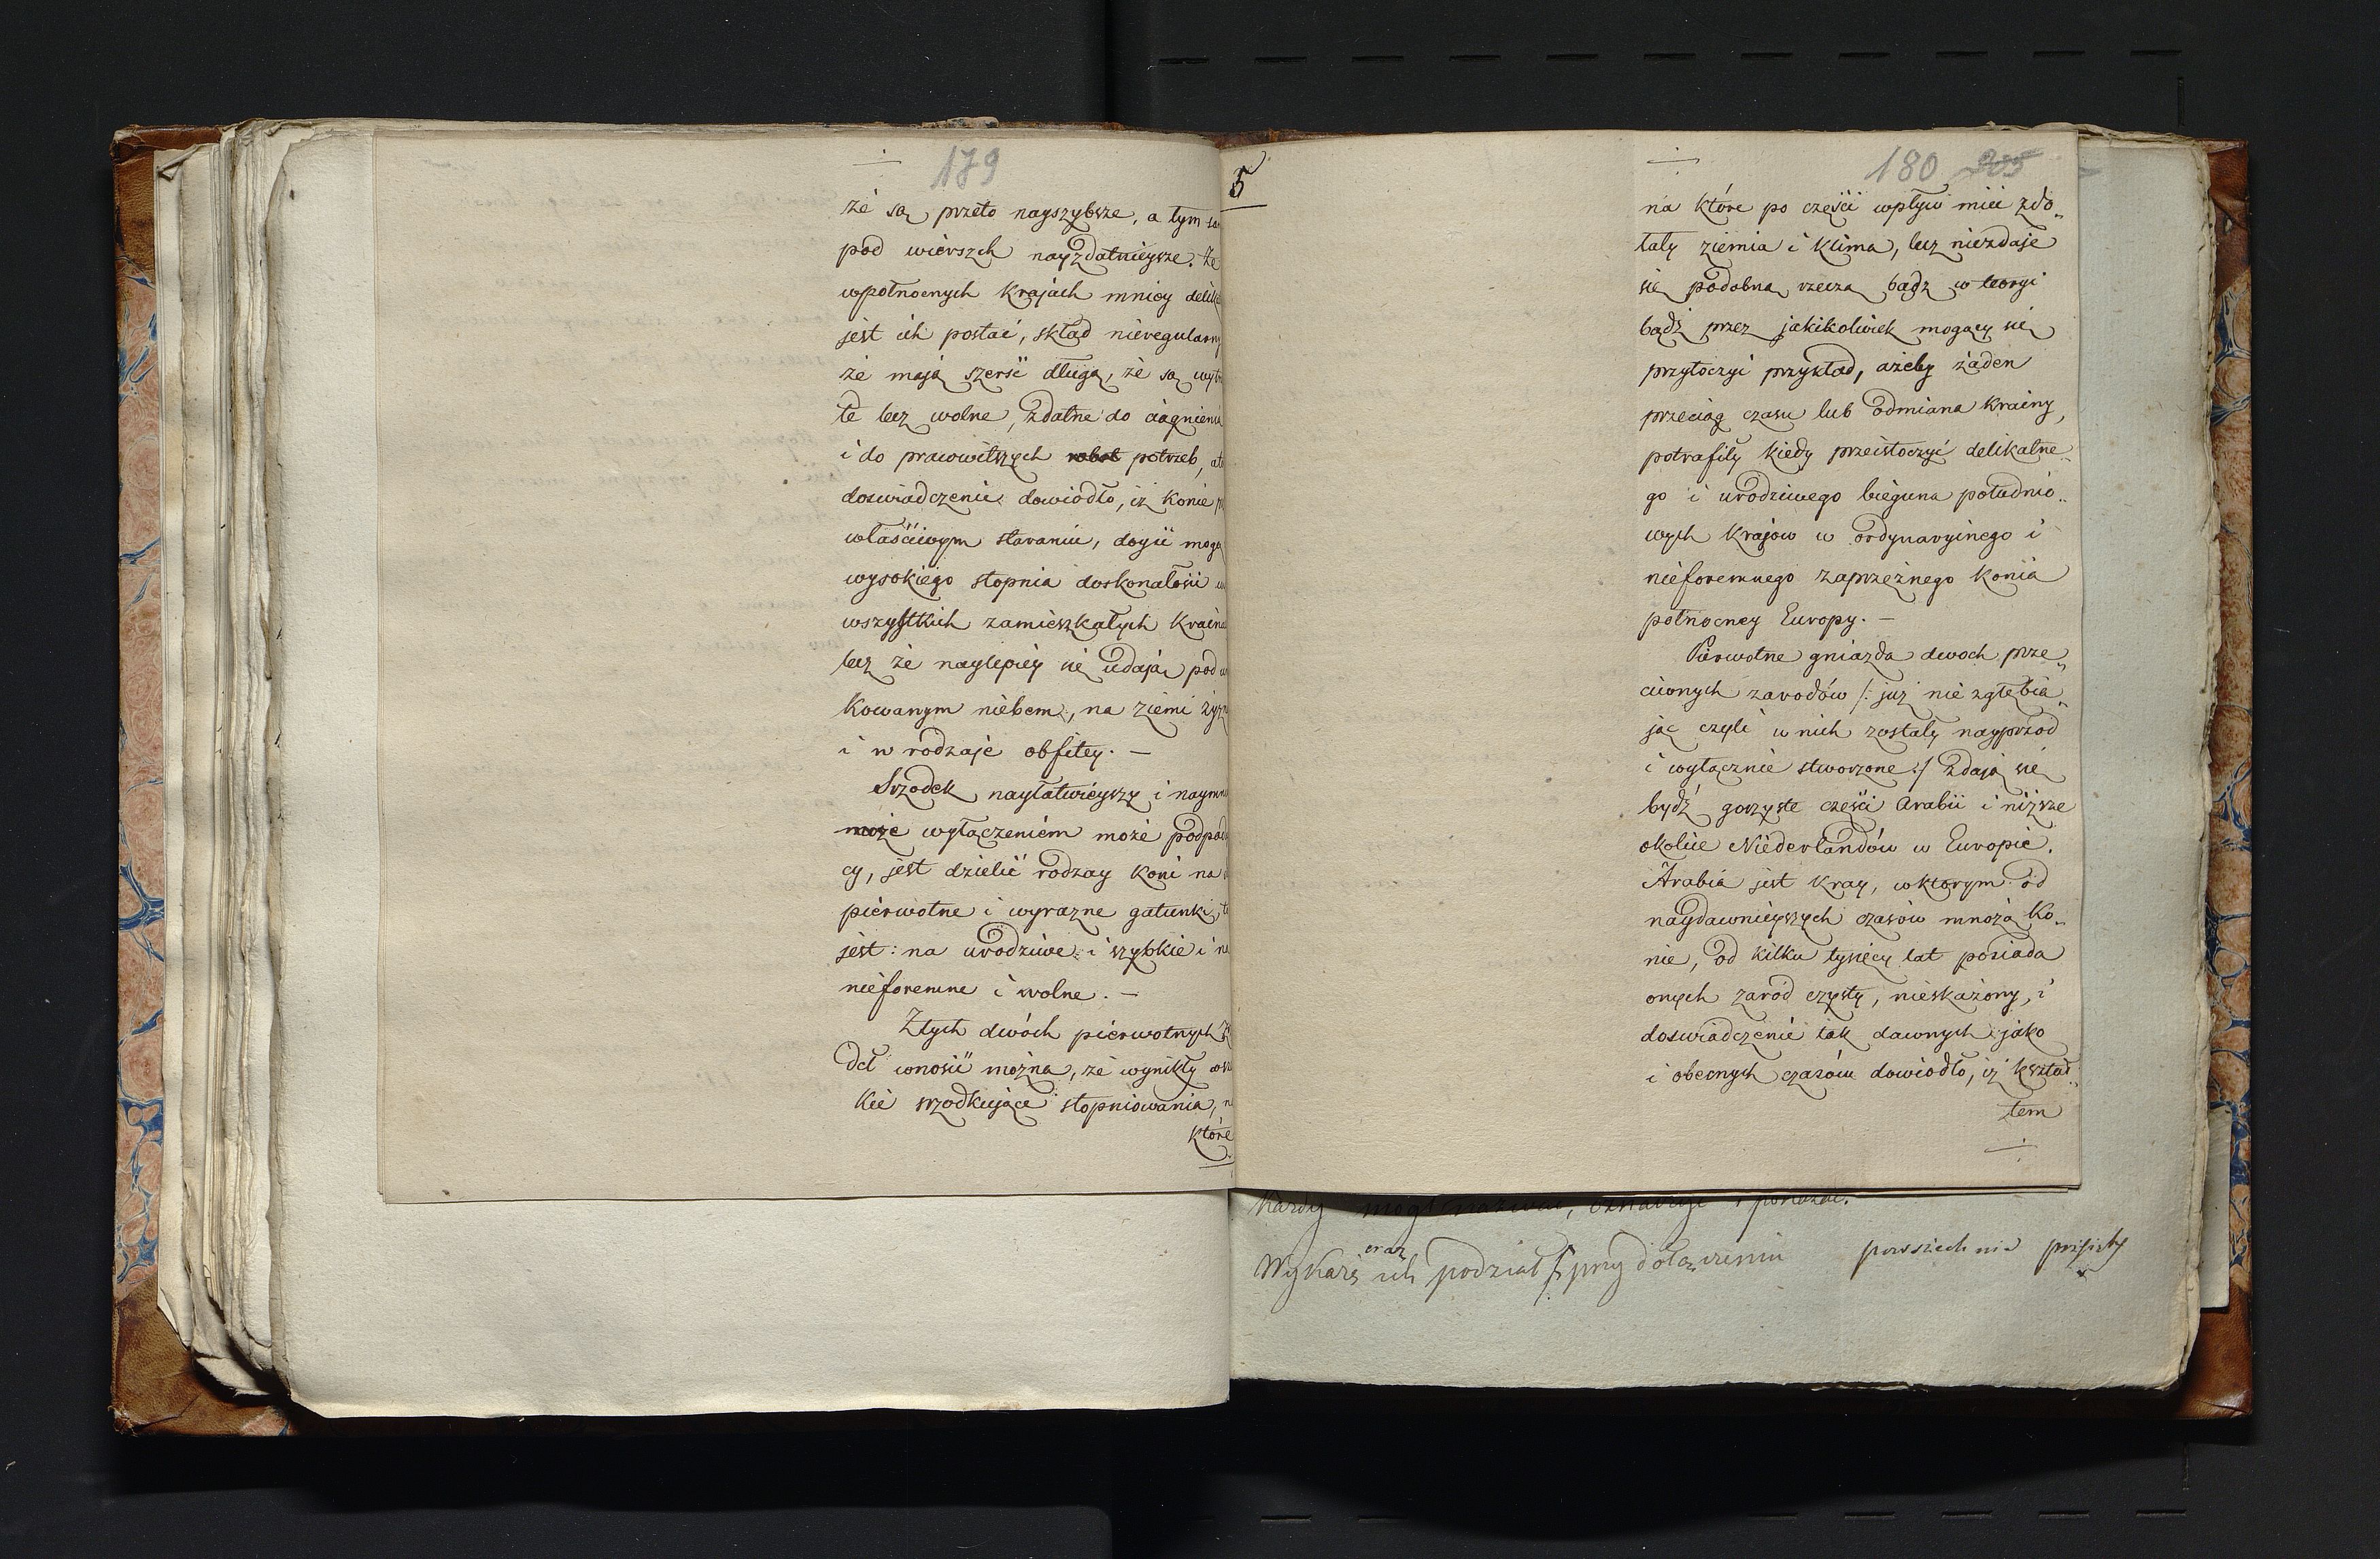 179
że są przeto nayszybsze, a tym
pod wierszch nayzdatnieysze. Że
wpołnocnych krajach mniey
jest ich postać, skład nieregularny
że mają szerść długą, że są
te lecz wolne, zdatne do ciągnienia
i do pracowitszych robot potrzeb,
doswiadczenie dowiodło, iż konie
właściwym staraniu, doyść mogą
wysokiego stopnia doskonałości
wszystkich zamieszkałych
lecz że naylepiey się udają pod
kowanym niebem, na ziemi
i w rodzaje obfitey. —
Srzodek nayłatwieyszy i
może wyłączeniem może
cy, jest dzielić rodzay koni na
pierwotne i wyrazne gatunki,
jest: na urodziwe i szybkie i
nieforemne i wolne. —
Ztych dwóch pierwotnych
deł wnosić można, że wynikły
kie srzodkujące stopniowania,
które
5
180 305
na które po części wpływ mieć zdo„
łały ziemia i klima, lecz niezdaje
się podobną rzeczą bądz w teoryi
bądź przez jakikolwiek mogący się
przytoczyć przykład, ażeby żaden
przeciąg czasu lub odmiana krainy,
potrafiły kiedy przeistoczyć delikatne„
go i urodziwego bieguna południo„
wych krajow w ordynaryinego i
nieforemnego zaprzeżnego konia
połnocney Europy. —
Pierwotne gniazda dwoch prze„
ciwnych zarodów /: już nie zgłębia„
jąc czyli w nich zostały nayprzod
i wyłącznie stworzone :/ zdają się
bydź gorzyste części Arabii i niższe
okolice Niederlandów w Europie.
Arabia jest kray, wktorym od
naydawnieyszych czasów mnożą ko„
nie, od kilku tysięcy lat posiada
onych zaród czysty, nieskażony, i
doswiadczenie tak dawnych jako
i obecnych czasów dowiodło, iż kształ„
tem
Każdy mogł
oraz
Wykaże ich podział /: przy dołączeniu powszechnie przyięty